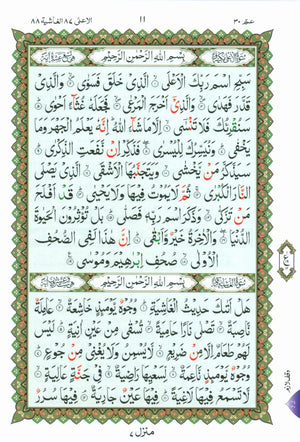 الاعلى ٨٧ الغاشية ٨٨
١١
عم ٣٠
بِسْمِ اللهِ الرَّحْمٰنِ الرَّحِيْمِ
سَبِّحِ اسْمَ رَبِّكَ الْاَعْلَى ۙ الَّذِيْ خَلَقَ فَسَوّٰى ۙ وَالَّذِيْ
قَدَّرَ فَهَدٰى ۙ وَالَّذِيْٓ اَخْرَجَ الْمَرْعٰى ۙ فَجَعَلَهٗ غُثَآءً اَحْوٰى ۙ
سَنُقْرِئُكَ فَلَا تَنْسٰٓى ۙ اِلَّا مَا شَآءَ اللهُ ۗ اِنَّهٗ يَعْلَمُ الْجَهْرَ وَمَا
يَخْفٰى ۙ وَنُيَسِّرُكَ لِلْيُسْرٰى ۙ فَذَكِّرْ اِنْ نَّفَعَتِ الذِّكْرٰى ۙ
سَيَذَّكَّرُ مَنْ يَّخْشٰى ۙ وَيَتَجَنَّبُهَا الْاَشْقَى ۙ الَّذِيْ يَصْلَى
النَّارَ الْكُبْرٰى ۙ ثُمَّ لَا يَمُوْتُ فِيْهَا وَلَا يَحْيٰى ۙ قَدْ اَفْلَحَ
مَنْ تَزَكّٰى ۙ وَذَكَرَ اسْمَ رَبِّهٖ فَصَلّٰى ۙ بَلْ تُؤْثِرُوْنَ الْحَيٰوةَ
الدُّنْيَا ۙ وَالْاٰخِرَةُ خَيْرٌ وَّاَبْقٰى ۙ اِنَّ هٰذَا لَفِي الصُّحُفِ
الْاُوْلٰى ۙ صُحُفِ اِبْرٰهِيْمَ وَمُوْسٰى ۙ
بِسْمِ اللهِ الرَّحْمٰنِ الرَّحِيْمِ
هَلْ اَتٰىكَ حَدِيْثُ الْغَاشِيَةِ ۙ وُجُوْهٌ يَّوْمَئِذٍ خَاشِعَةٌ ۙ عَامِلَةٌ
نَّاصِبَةٌ ۙ تَصْلٰى نَارًا حَامِيَةً ۙ تُسْقٰى مِنْ عَيْنٍ اٰنِيَةٍ ۙ لَيْسَ
لَهُمْ طَعَامٌ اِلَّا مِنْ ضَرِيْعٍ ۙ لَّا يُسْمِنُ وَلَا يُغْنِيْ مِنْ جُوْعٍ ۙ
وُجُوْهٌ يَّوْمَئِذٍ نَّاعِمَةٌ ۙ لِّسَعْيِهَا رَاضِيَةٌ ۙ فِيْ جَنَّةٍ عَالِيَةٍ ۙ
لَّا تَسْمَعُ فِيْهَا لَاغِيَةً ۙ فِيْهَا عَيْنٌ جَارِيَةٌ ۙ فِيْهَا سُرُرٌ
منزل ٧